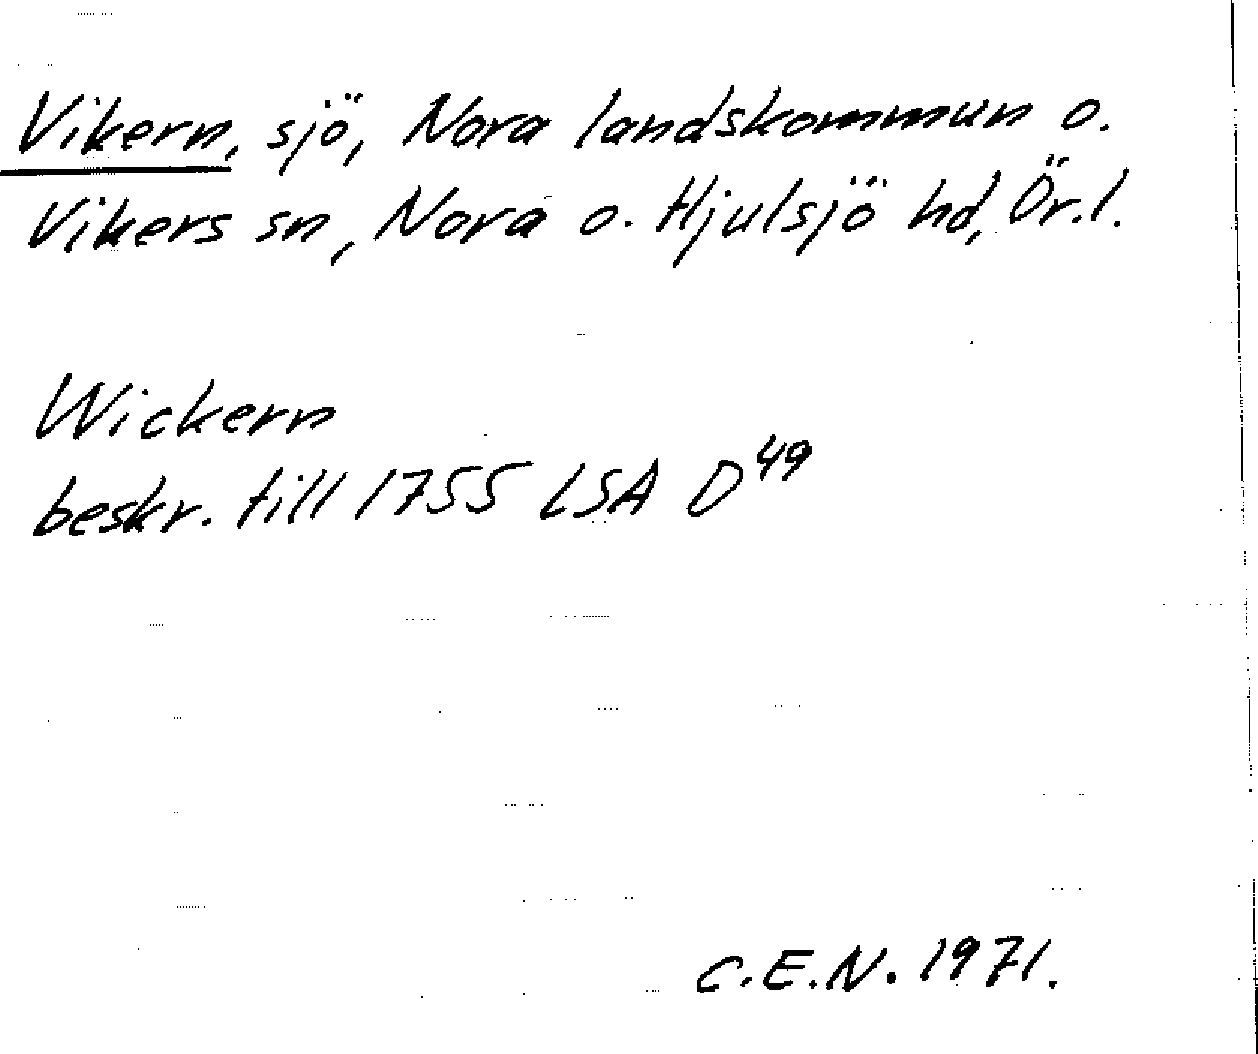 Vikern, sjö, Nora landskommun o.
Vikers sn, Nora o. Hjulsjö hd, Ör.l.
Wickern
beskr. till 1755 LSA D49
C.E.N. 1971.